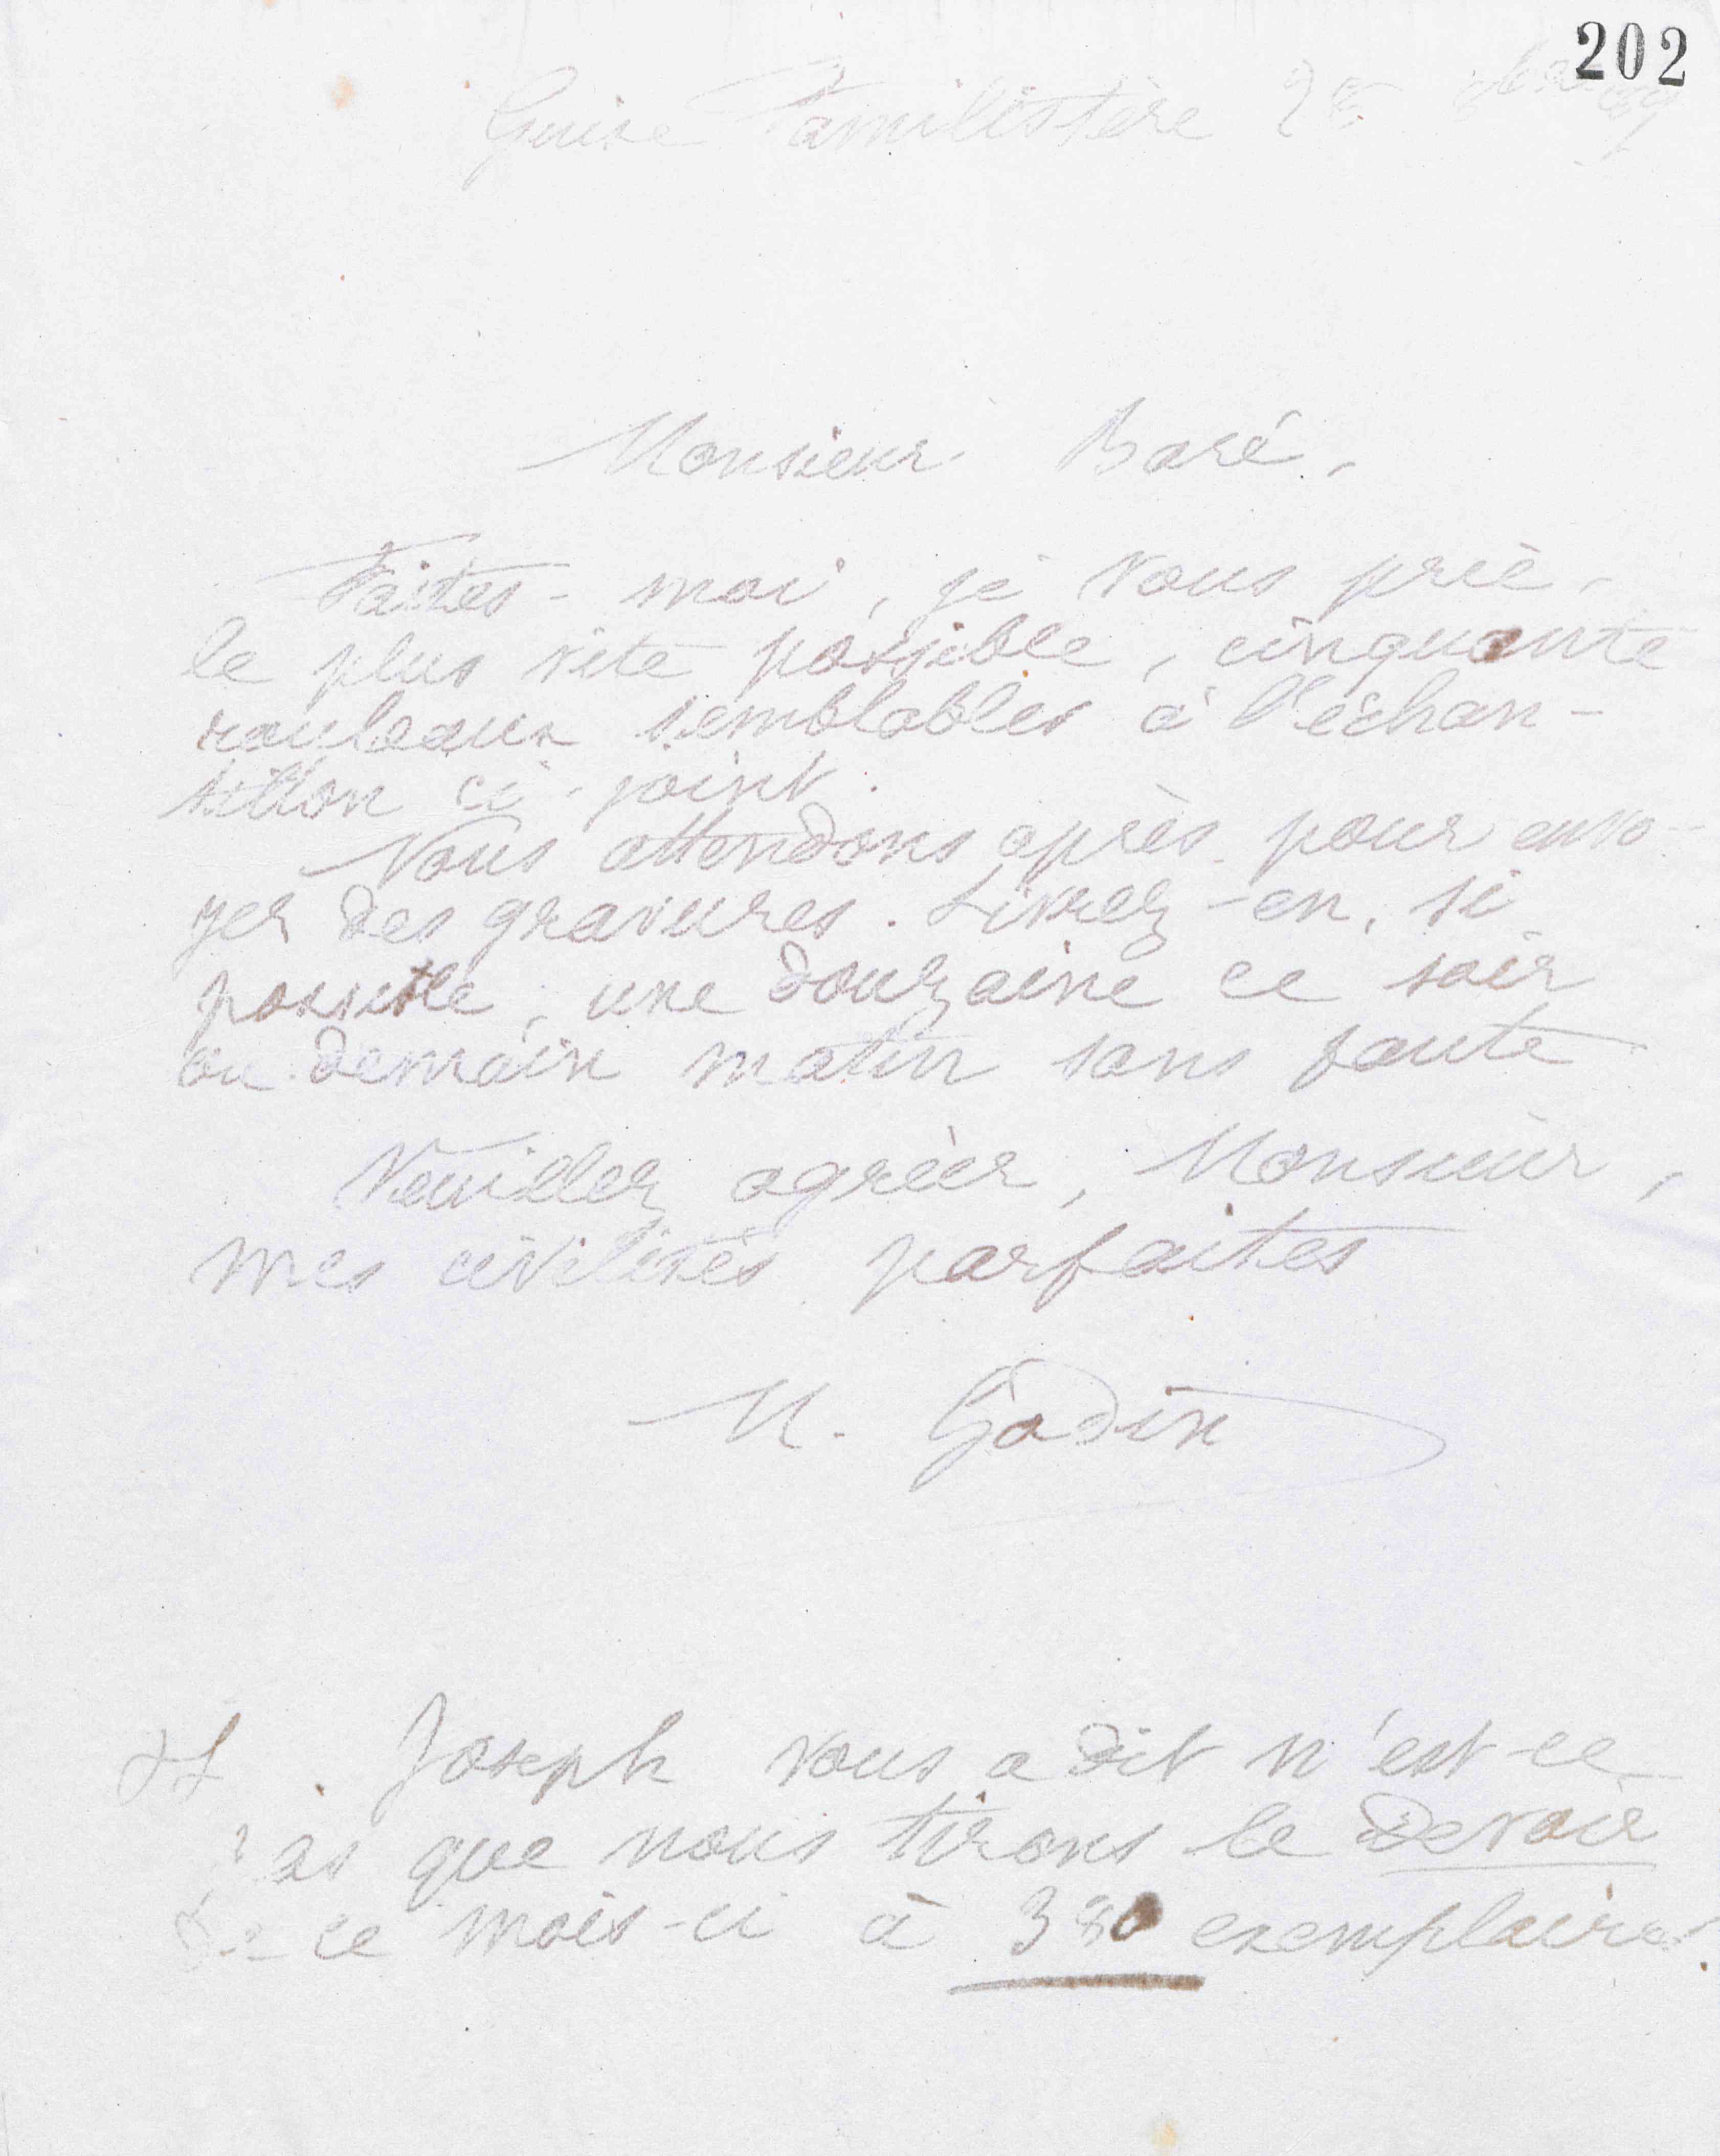 202
Guise Familistère
Monsieur Baré,
Faites-moi, je vous prie,
le plus vite possible, cinquante
rouleaux semblables à l'échan-
tillon ci-joint.
Nous attendons après pour envo-
yer des gravures. Livrez-en, si
possible, une douzaine ce soir
ou demain matin sans faute
Veuillez agréer, Monsieur,
mes civilités parfaites
M. Godin
Joseph vous a dit n'est-ce
pas que nous tirons le Devoir
de ce mois-ci à 380 exemplaires.